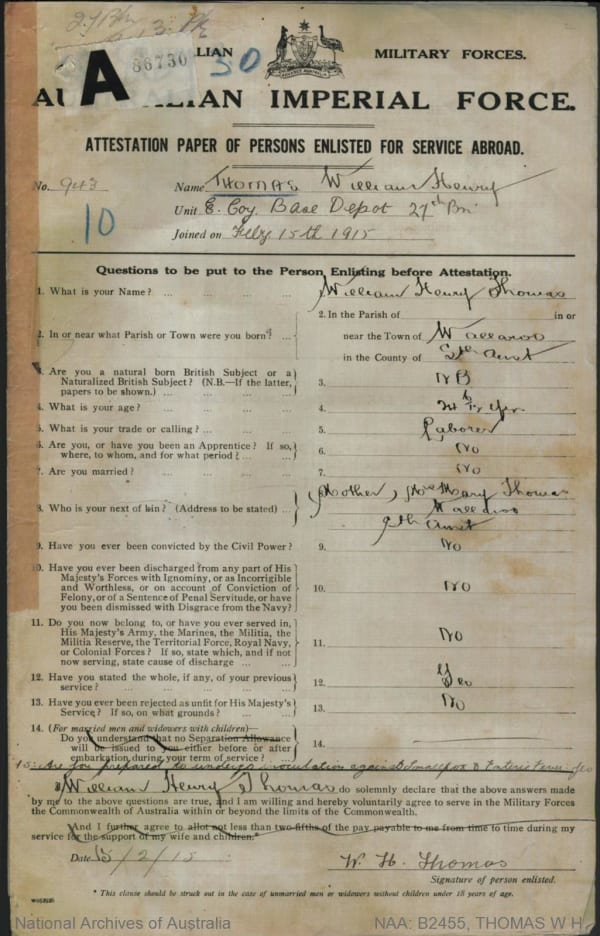 27 Bn
86730
A
LIAN MILITARY FORCES.
30
AU ALIAN IMPERIAL FORCE.
ATTESTATION PAPER OF PERSONS ENLISTED FOR SERVICE ABROAD.
No. 943 Name THOMAS William Henry
10
Unit E. Coy. Base Depot 27th Bn.
Joined on Feby 15th 1915
Questions to be put to the Person Enlisting before Attestation.
1. What is your Name? ... William Henry Thomas
2. In or near what Parish or Town were you born? ...
2. In the Parish of in or
near the Town of Wallaroo
in the County of Sth Aust
3. Are you a natural born British Subject or a
Naturalized British Subject? (N.B.—If the latter,
papers to be shown.) ... 3. NB
4. What is your age? ... 4. 24 yrs
5. What is your trade or calling? ... 5. Laborer
6. Are you, or have you been an Apprentice? If so,
where, to whom, and for what period? ... 6. No
7. Are you married? ... 7. No
8. Who is your next of kin? (Address to be stated) ...
8. Mother, Mrs Mary Thomas
Wallaroo
Sth Aust
9. Have you ever been convicted by the Civil Power? 9. No
10. Have you ever been discharged from any part of His
Majesty's Forces with Ignominy, or as Incorrigible
and Worthless, or on account of Conviction of
Felony, or of a Sentence of Penal Servitude, or have
you been dismissed with Disgrace from the Navy? 10. No
11. Do you now belong to, or have you ever served in,
His Majesty's Army, the Marines, the Militia, the
Militia Reserve, the Territorial Force, Royal Navy,
or Colonial Forces? If so, state which, and if not
now serving, state cause of discharge ... 11. No
12. Have you stated the whole, if any, of your previous
service? ... 12. Yes
13. Have you ever been rejected as unfit for His Majesty's
Service? If so, on what grounds? ... 13. No
14. (For married men and widowers with children)—
Do you understand that no Separation Allowance
will be issued to you either before or after
embarkation during your term of service? ... 14.
15. Are you prepared to undergo inoculation against Smallpox & Enteric Fever. Yes
I William Henry Thomas do solemnly declare that the above answers made
by me to the above questions are true, and I am willing and hereby voluntarily agree to serve in the Military Forces
the Commonwealth of Australia within or beyond the limits of the Commonwealth.
And I further agree to allot not less than two-fifths of the pay payable to me from time to time during my
service for the support of my wife and children.*
Date 15/2/15
W. H. Thomas
Signature of person enlisted.
* This clause should be struck out in the case of unmarried men or widowers without children under 18 years of age.
National Archives of Australia NAA: B2455, THOMAS W H